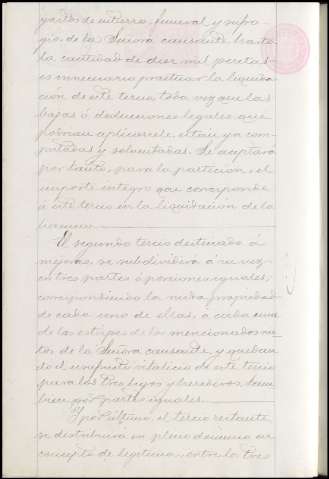 gastos de entierro, funeral, y sufra-
gio de la Señora causante, hasta
la cantidad de diez mil pesetas
es innecesario practicar la liquida-
ción de este tercio toda vez que las
bajas ó deducciones legales que
podrían aplicarsele, están ya com-
putadas y solventadas. Se aceptará
por tanto, para la partición, el
importe íntegro que corresponde
á este tercio en la liquidación de la
herencia.
El segundo tercio destinado á
mejoras, se subdividirá á su vez
en tres partes ó porciones iguales,
correspondiendo la nuda propiedad
de cada una de ellas, á cada una
de las estirpes de los mencionados nie-
tos de la Señora causante, y quedan-
do el usufructo vitalicio de este tercio
para los tres hijos y herederos, tam-
bien por partes iguales.
Y por último, el tercio restante,
se distribuirá en pleno dominio en
concepto de legítima, entre los tres